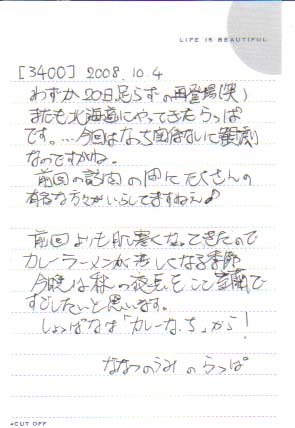 LIFE IS BEAUTIFUL
[3400] 2008.10.4
わずか20日足らずの再登場(笑)
またも北海道にやってきたらっぱ
です。…今回はなっち関係ないに観劇
なのですがね。
前回の訪問の間にたくさんの
有名な方々がいらしてますねえ♪
前回よりも肌寒くなってきたので
カレーラーメンが恋しくなる季節
今晩は秋の夜長をここ室蘭で
すごしたいと思います。
しょっぱなは「カレーなっち」から!
ななつのうみのらっぱ
◂CUT OFF